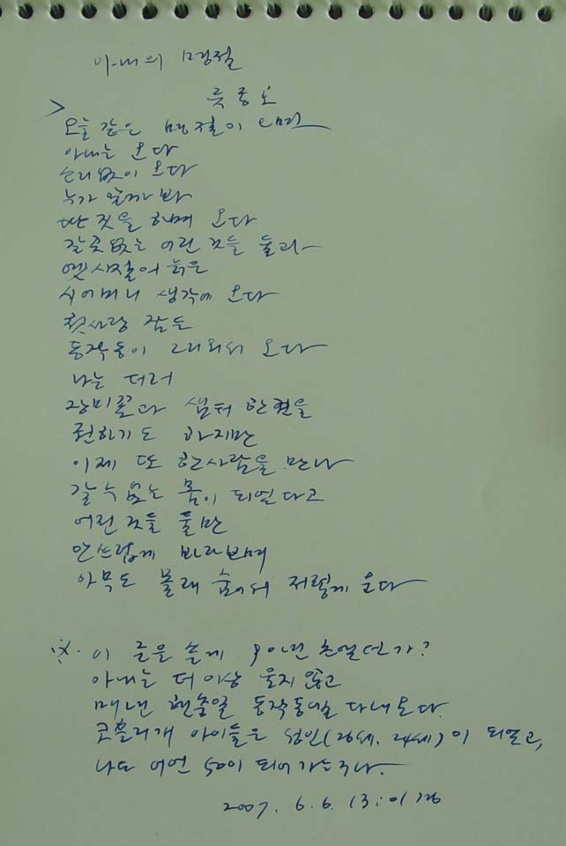 아내의 명절
오늘 같은 명절이 오면
아내는 운다
소리없이 운다
누가 알까 봐
딴 짓을 하며 운다
갈곳없는 어린 것들 둘과
옛시절에 늙은
시어머니 생각에 운다
첫사랑 잠든
동작동이 그리워서 운다
나는 더러
장미꽃과 샘터 한권을
권하기도 하지만
이제 또 한사람을 만나
갈 수 없는 몸이 되었다고
어린 것들 둘만
안쓰럽게 바라보며
아무도 몰래 숨어서 저렇게 운다
※. 이 글을 쓴게 90년 초였던가?
아내는 더 이상 울지 않고
매년 현충일 동작동에를 다녀온다.
코흘리개 아이들은 성인(26세. 24세)이 되었고,
나도 어언 50이 되어가는구나.
2007. 6. 6. 13:01